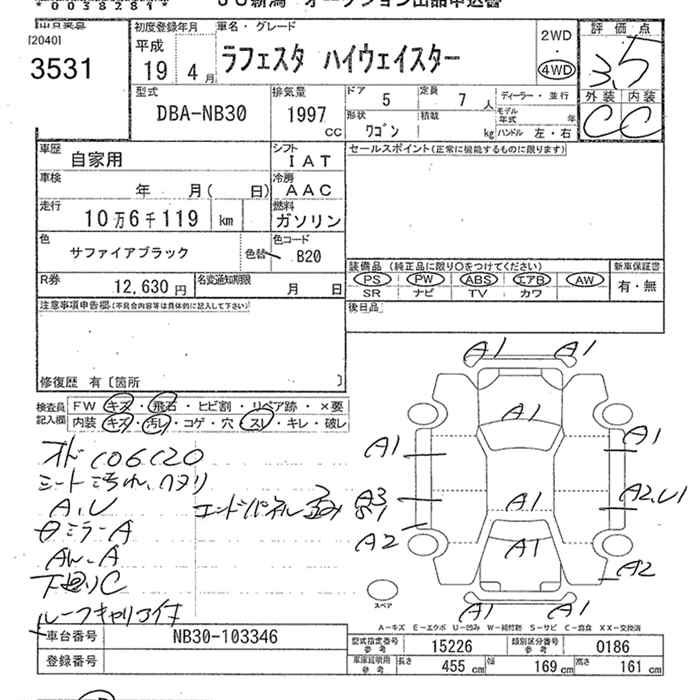 JU新潟 オークション出品申込書
*003828181*
出品票
[2040]
3531
初度登録年月
平成
19 4 月
車名・グレード
ラフェスタ ハイウェイスター
2WD
・
4WD
評価点
3.5
外装 内装
C C
型式
DBA-NB30
排気量
1997
CC
ドア 5
定員 7 人
形状 ワゴン
積載 kg
ディーラー・並行
モデル年式 年
ハンドル 左・右
車歴 自家用
シフト IAT
車検 年 月( 日)
冷房 AAC
走行 10万6千119 km
燃料 ガソリン
色 サファイアブラック
色替
色コード B20
R券 12,630円
名変通知期限 月 日
セールスポイント(正常に機能するものに限ります)
装備品(純正品に限り○をつけてください)
PS PW ABS エアB AW
SR ナビ TV カワ
新車保証書
有・無
後日品
注意事項申告欄(不具合内容等は具体的に記入して下さい)
修復歴 有〔箇所 〕
検査員記入欄
FW キズ・飛石・ヒビ割・リペア跡・×要
内装 キズ・汚レ・コゲ・穴・スレ・キレ・破レ
シート汚れ、ヘタリ
A、U
エンドパネル凹み
ミラーA
A
下廻りC
ルーフキャリア付
A1 A1
A1
A1 A1
A3 A1 A2,U1
S1
A2 A1 A2
A1 A1
スペア
A-キズ E-エクボ U-凹み W-補修跡 S-サビ C-腐食 XX-交換済
車台番号 NB30-103346
登録番号
型式指定番号 参考 15226
類別区分番号 参考 0186
車庫証明用 参考 長さ 455 cm 幅 169 cm 高さ 161 cm